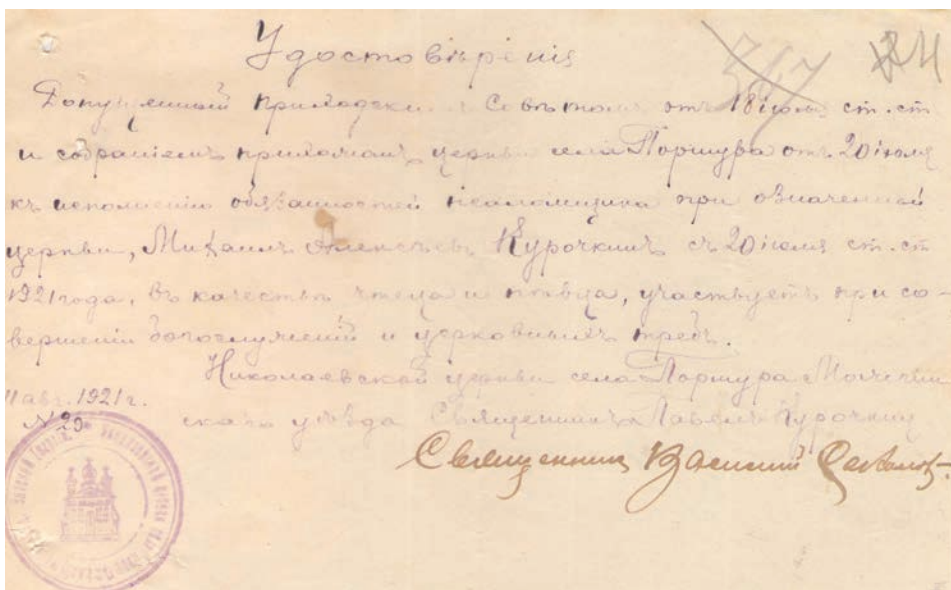 Удостовѣрініе
24
367
Допущенный приходским Совѣтомъ отъ 18 іюля ст. ст
и собраніемъ прихожанъ церкви села Поршура отъ 20 іюля
къ исполненію обязанностей псаломщика при означенной
церкви, Михаилъ Алексѣевъ Курочкинъ съ 20 іюля ст. ст
1921 года, въ качествѣ чтеца и пѣвца, участвуетъ при со-
вершеніи богослуженій и церковныхъ требъ.
Николаевской церкви села Поршура
11 авг. 1921 г.
№ 29
скаго уѣзда Священникъ Павелъ Курочкин
Священник Василий